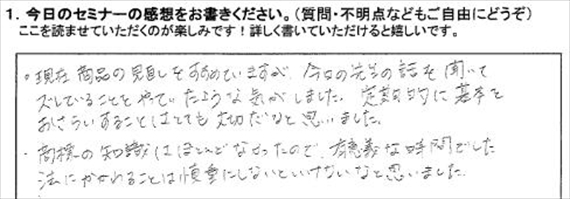 1. 今日のセミナーの感想をお書きください。（質問・不明点などもご自由にどうぞ）
ここを読ませていただくのが楽しみです！詳しく書いていただけると嬉しいです。
・現在商品の見直しをすすめていますが、今日の先生の話を聞いて
ズレていることをやっていたような気がしました。定期的に基本を
おさらいすることはとても大切だなと思いました。
・商標の知識はほとんどなかったので、有意義な時間でした
法にかかわることは慎重にしないといけないなと思いました。